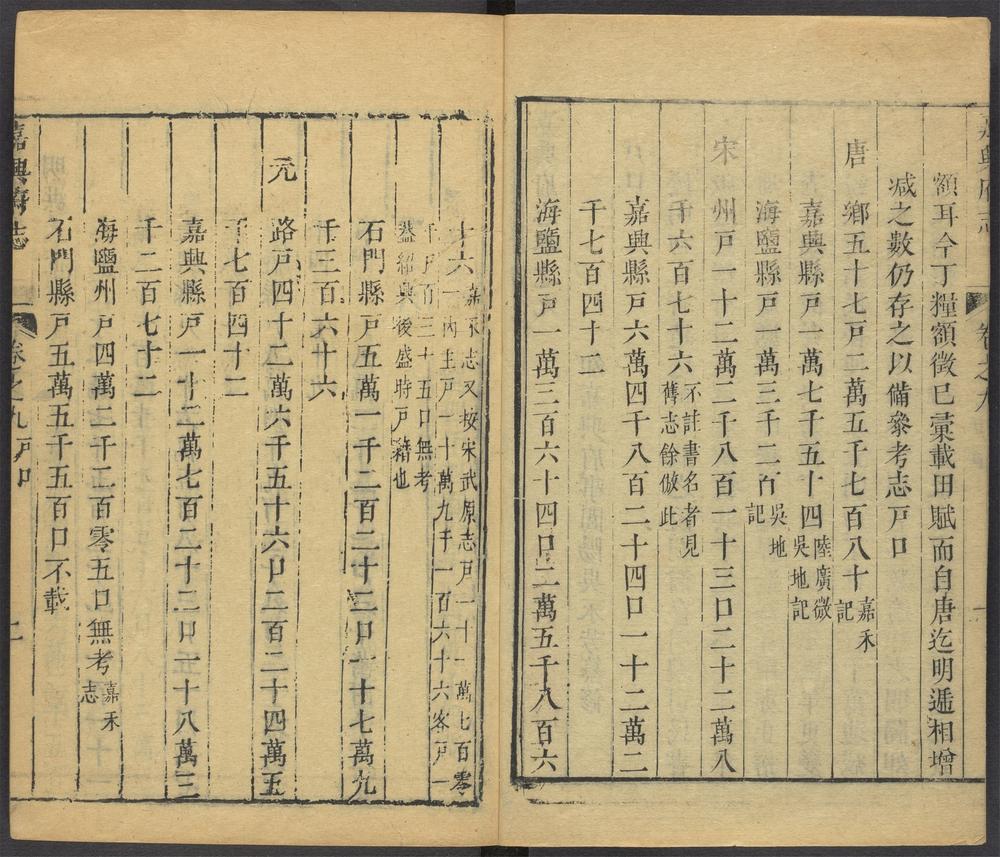 額耳今丁糧額徵已彙載田賦而自唐迄明遞相增
減之數仍存之以備參考志戶口
唐
鄉五十七戶二萬五千七百八十嘉禾
記
嘉興縣戶一萬七千五十四陸廣微
吳地記
海鹽縣戶一萬三千二百吳地
記
宋
州戶一十二萬二千八百一十三口二十二萬八
千六百七十六不註書名者見
舊志餘倣此
嘉興縣戶六萬四千八百二十四口一十二萬二
千七百四十二
海鹽縣戶一萬三百六十四口二萬五千八百六
十六一嘉禾志又按宋武原志戶一十一萬七百零
一內主戶一十萬九千一百六十六客戶一
千戶百三十五口無考
蓋紹興後盛時戶籍也
石門縣戶五萬一千二百二十三口一十七萬九
千三百六十六
元
路戶四十二萬六千五十六口二百二十四萬五
千七百四十二
嘉興縣戶一十二萬七百二十三口五十八萬三
千二百七十二
海鹽州戶四萬二千二百零五口無考嘉禾
志
石門縣戶五萬五千五百口不載
嘉興舊志
卷之九戶口
二